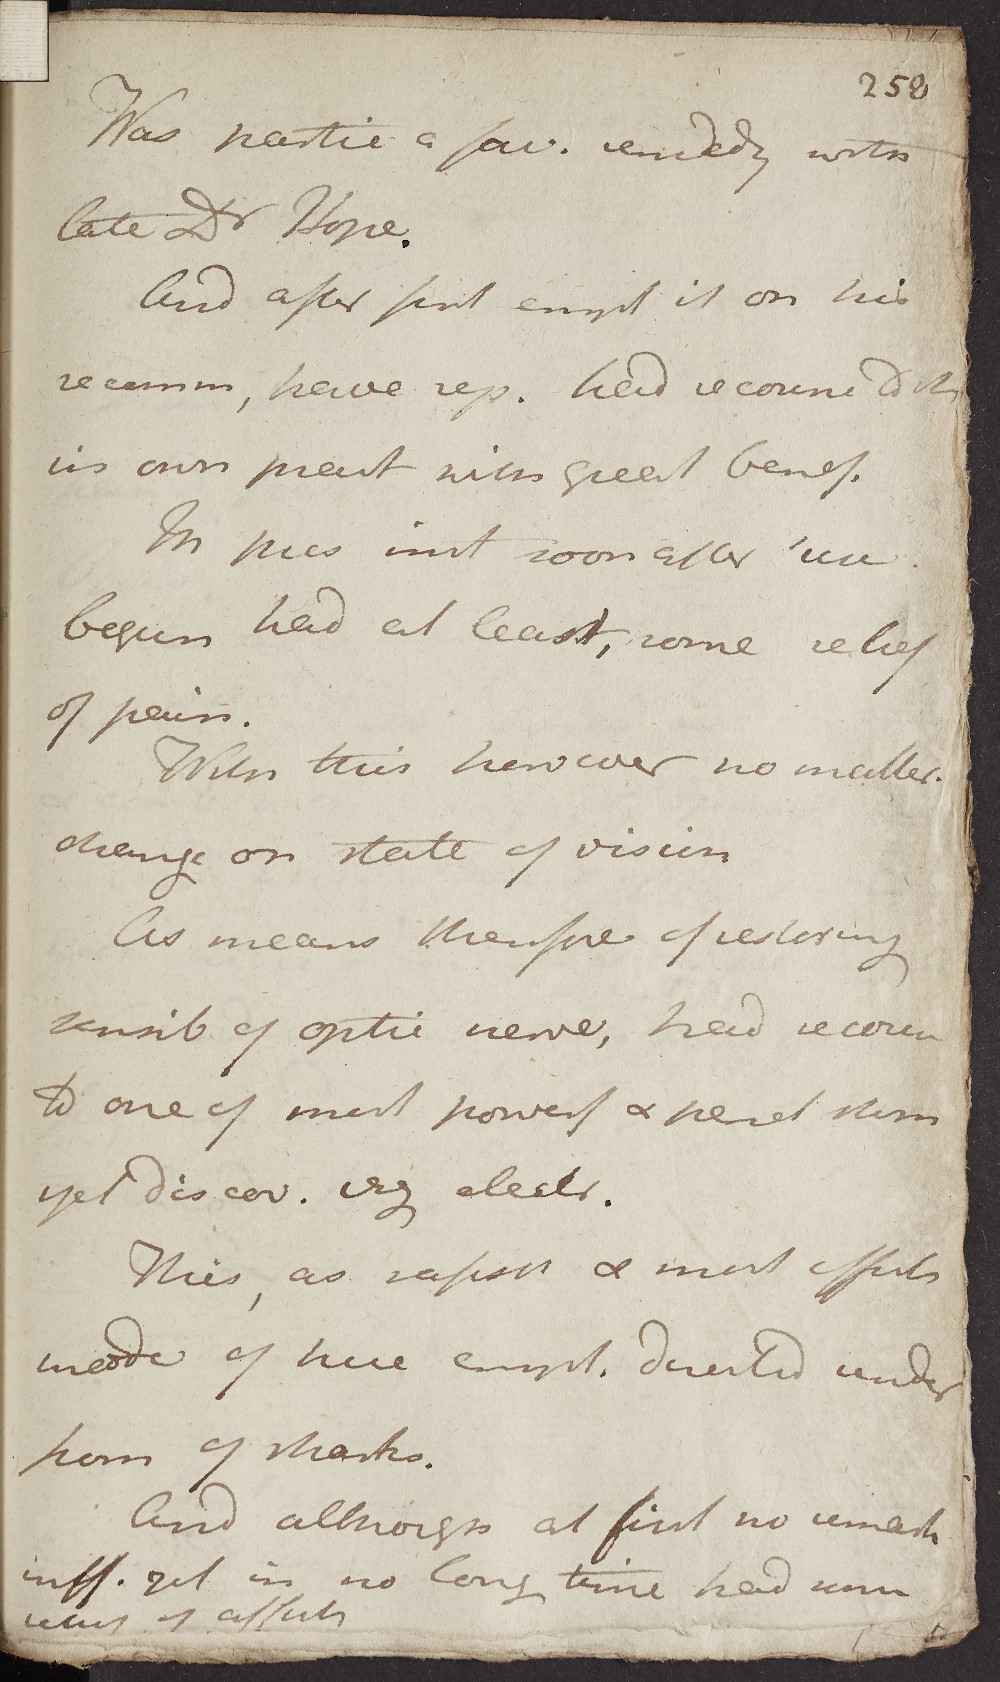 252
Was partic a fav. remedy with
late Dr Hope.
And after first empt it on his
recomm, have rep. had recourse to it
in own pract with great benef.
In pres inst soon after use
begun had at least, some relief
of pain.
With this however no matter.
change on state of vision
As means therefore of restoring
sensib of optic nerve, had recour
to one of most powerf & penet stim
yet discov. viz electr.
This, as safest & most effects
mode of here empt. directed under
form of shocks.
And although at first no remark
inff. yet in no long time had
relief of affects